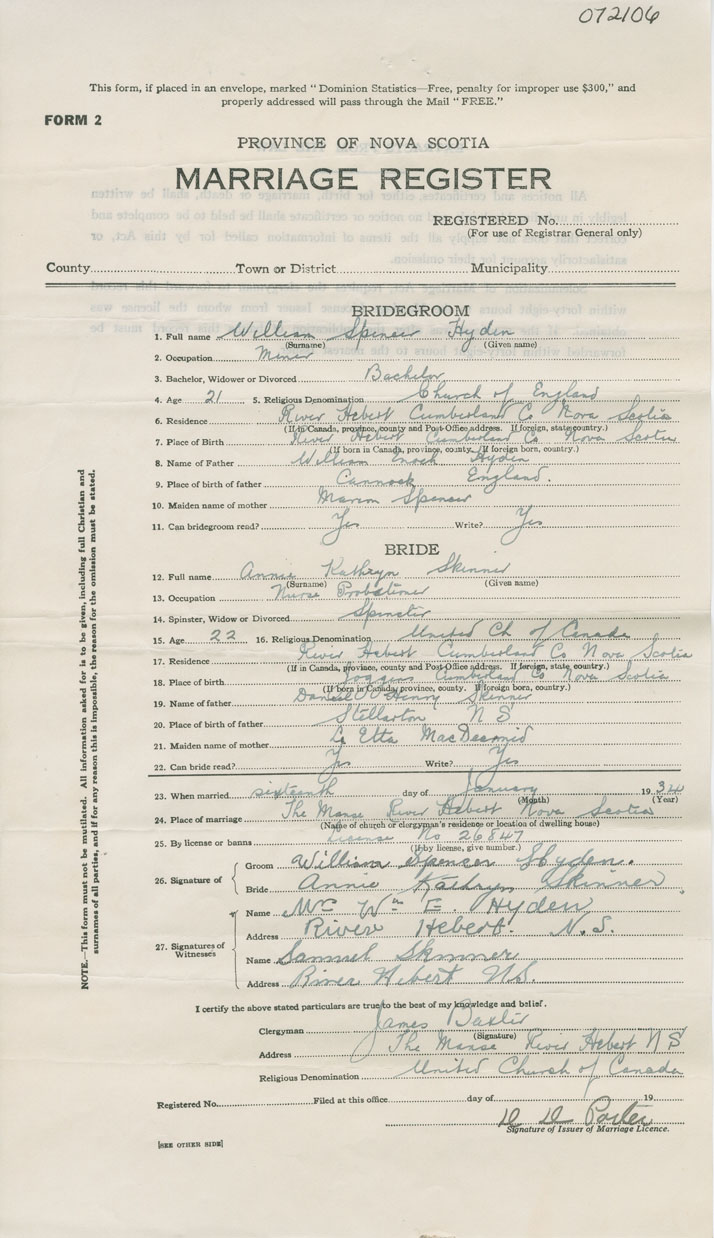 072106
This form, if placed in an envelope, marked "Dominion Statistics—Free, penalty for improper use $300," and
properly addressed will pass through the Mail "FREE."
FORM 2
PROVINCE OF NOVA SCOTIA
MARRIAGE REGISTER
REGISTERED No.
(For use of Registrar General only)
County Town or District Municipality
BRIDEGROOM
1. Full name William Spencer Hyden
(Surname) (Given name)
2. Occupation Miner
3. Bachelor, Widower or Divorced Bachelor
4. Age 21 5. Religious Denomination Church of England
6. Residence River Hebert Cumberland Co Nova Scotia
(If in Canada, province, county and Post-Office address. If foreign, state country.)
7. Place of Birth River Hebert Cumberland Co Nova Scotia
(If born in Canada, province, county. If foreign born, country.)
8. Name of Father William Enoch Hyden
9. Place of birth of father Cannock England.
10. Maiden name of mother Marion Spencer
11. Can bridegroom read? Yes Write? Yes
BRIDE
12. Full name Annie Kathryn Skinner
(Surname) (Given name)
13. Occupation Nurse Probationer
14. Spinster, Widow or Divorced Spinster
15. Age 22 16. Religious Denomination United Ch of Canada
17. Residence River Hebert Cumberland Co Nova Scotia
(If in Canada, province, county and Post Office address. If foreign, state country.)
18. Place of birth Joggins Cumberland Co Nova Scotia
(If born in Canada, province, county. If foreign born, country.)
19. Name of father Daniel Henry Skinner
20. Place of birth of father Stellarton N S
21. Maiden name of mother Etta MacDearmid
22. Can bride read? Yes Write? Yes
23. When married sixteenth day of January 1934
(Month) (Year)
24. Place of marriage The Manse River Hebert Nova Scotia
(Name of church or clergyman's residence or location of dwelling house)
25. By license or banns License No 26847
(If by license, give number.)
26. Signature of
Groom William Spencer Hyden.
Bride Annie Kathryn Skinner
27. Signatures of Witnesses
Name Mc Wm E. Hyden
Address River Hebert. N.S.
Name Samuel Skinner
Address River Hebert NS.
I certify the above stated particulars are true to the best of my knowledge and belief.
Clergyman James Baxter
(Signature)
Address The Manse River Hebert N S
Religious Denomination United Church of Canada
Registered No. Filed at this office day of 19
D D Porter
Signature of Issuer of Marriage Licence.
[SEE OTHER SIDE]
NOTE.—This form must not be mutilated. All information asked for is to be given, including full Christian and
surnames of all parties, and if for any reason this is impossible, the reason for the omission must be stated.